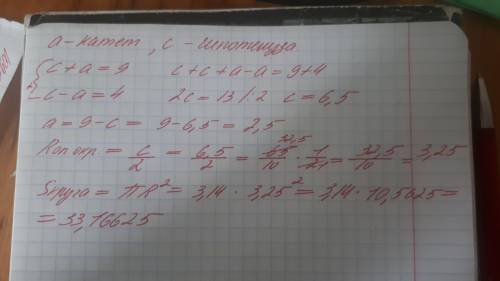 а - катет, с - гипотенуза.
{ с + а = 9     с + с + а - а = 9 + 4
с - а = 4     2с = 13 | : 2   с = 6,5
а = 9 - с = 9 - 6,5 = 2,5
R оп окр = с/2 = 6,5/2 = 65/10 · 1/2 = 32,5/10 = 3,25
S круга = πR² = 3,14 · 3,25² = 3,14 · 10,5625 =
= 33,16625